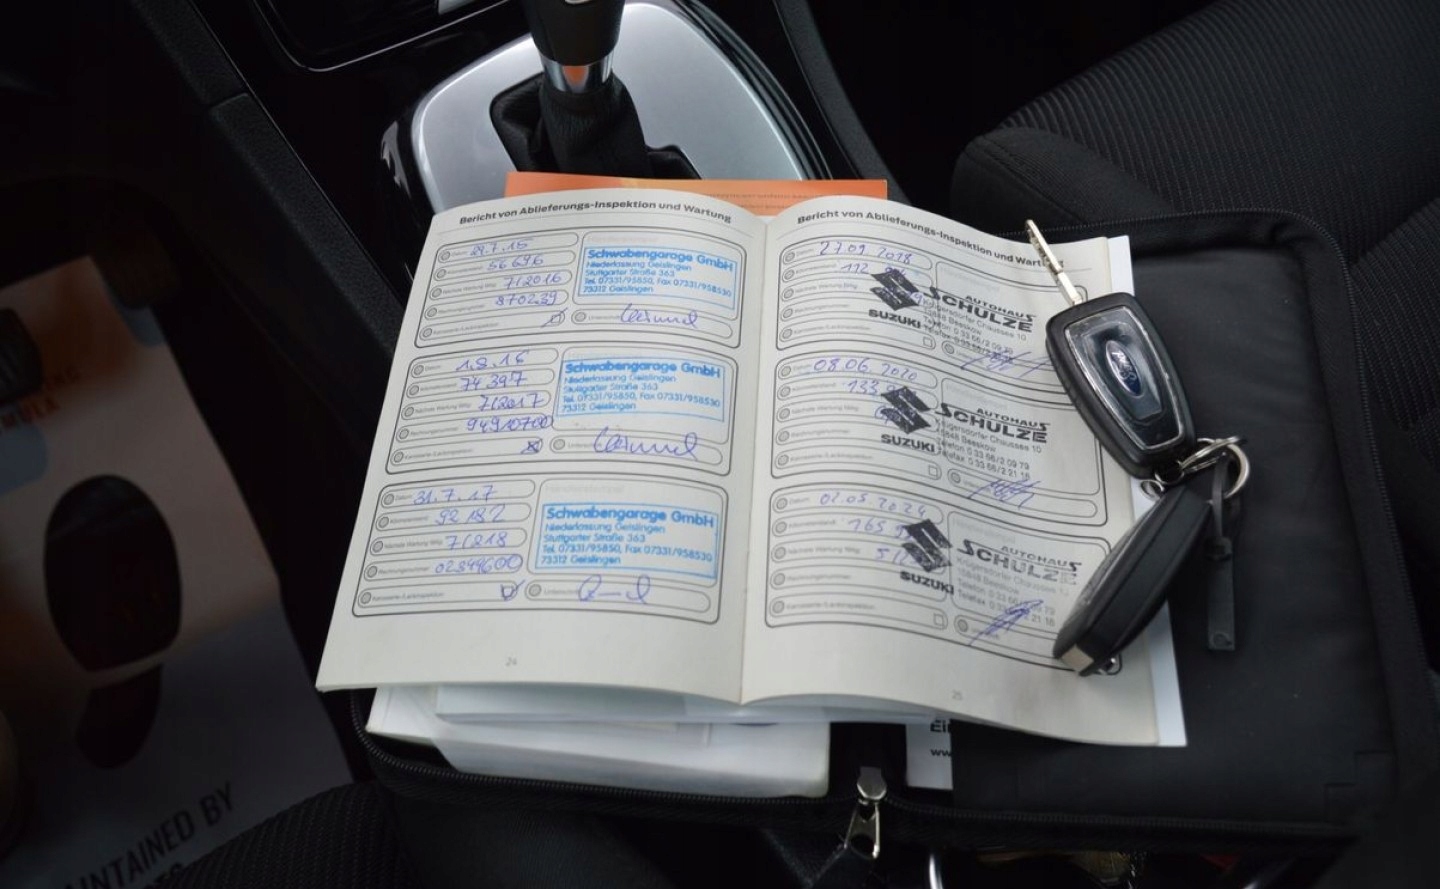 Bericht von Ablieferungs-Inspektion und Wartung
Datum 29.7.15
56 696
Nächste Wartung fällig 7/2016
Rechnungsnummer 870239
Karosserie-/Lackinspektion
Schwabengarage GmbH
Niederlassung Geislingen
Stuttgarter Straße 363
Tel. 07331/95850, Fax 07331/958530
73312 Geislingen
Datum 1.8.16
Kilometerstand 74 397
Nächste Wartung fällig 7/2017
Rechnungsnummer 94910700
Karosserie-/Lackinspektion
Schwabengarage GmbH
Niederlassung Geislingen
Stuttgarter Straße 363
Tel. 07331/95850, Fax 07331/958530
73312 Geislingen
Datum 31.7.17
Kilometerstand 92 182
Nächste Wartung fällig 7/218
Rechnungsnummer 02849600
Karosserie-/Lackinspektion
Schwabengarage GmbH
Niederlassung Geislingen
Stuttgarter Straße 363
Tel. 07331/95850, Fax 07331/958530
73312 Geislingen
24
Bericht von Ablieferungs-Inspektion und Wartung
Datum 27 09 2018
Kilometerstand 112
Nächste Wartung fällig
Rechnungsnummer
Karosserie-/Lackinspektion
SUZUKI
AUTOHAUS
SCHULZE
Krügersdorfer Chaussee 10
15848 Beeskow
Telefon 0 33 66/2 09 79
08.06.2020
Kilometerstand 133
Nächste Wartung fällig
Rechnungsnummer
Karosserie-/Lackinspektion
SUZUKI
AUTOHAUS
SCHULZE
Krügersdorfer Chaussee 10
15848 Beeskow
Telefon 0 33 66/2 09 79
Telefax 0 33 66/2 21 16
Datum 02.05.2024
Kilometerstand 165
Nächste Wartung fällig 5/
Rechnungsnummer
Karosserie-/Lackinspektion
SUZUKI
AUTOHAUS
SCHULZE
Krügersdorfer Chaussee
15848 Beeskow
Telefon 0 33 66
Telefax 0 33 2 21 16
25
Ford
www
MAINTAINED BY